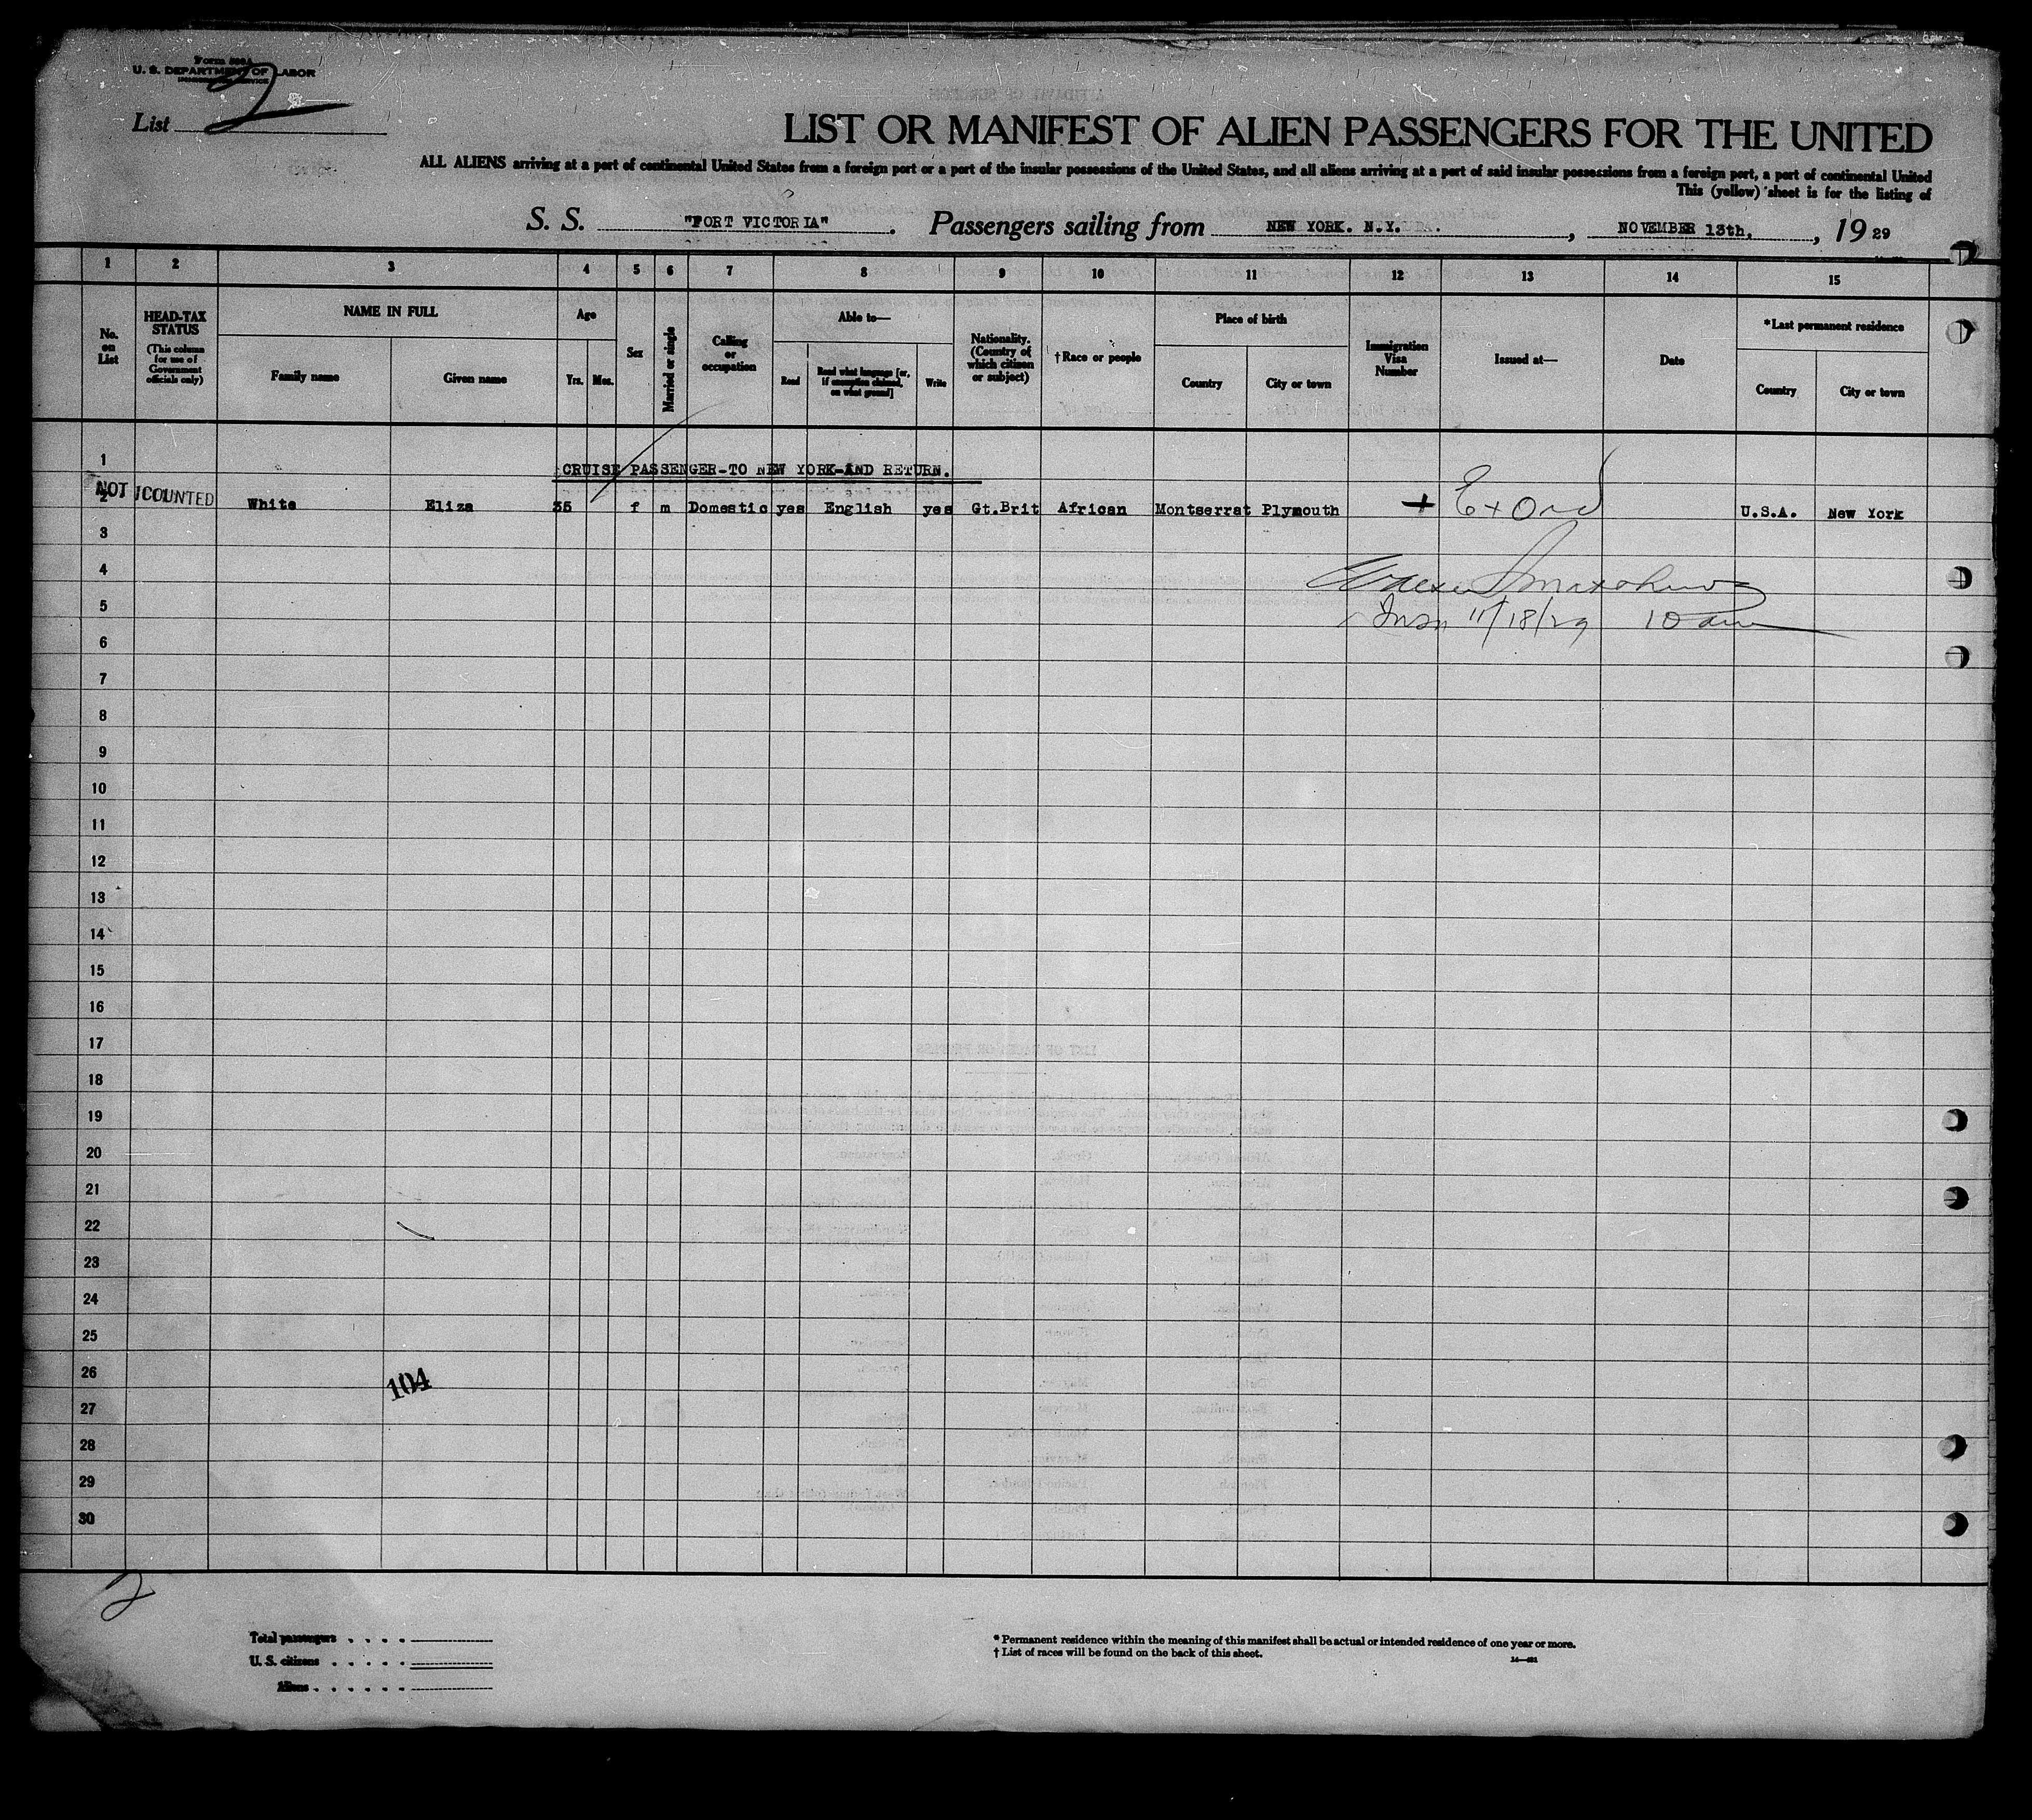 Form 500A
U. S. DEPARTMENT OF LABOR
IMMIGRATION SERVICE
List 2
LIST OR MANIFEST OF ALIEN PASSENGERS FOR THE UNITED
ALL ALIENS arriving at a port of continental United States from a foreign port or a port of the insular possessions of the United States, and all aliens arriving at a port of said insular possessions from a foreign port, a port of continental United
This (yellow) sheet is for the listing of
S. S. "FORT VICTORIA". Passengers sailing from NEW YORK. N.Y. , NOVEMBER 13th, , 19 29
1 2 3 4 5 6 7 8 9 10 11 12 13 14 15
No. on List
HEAD-TAX STATUS
(This column for use of Government officials only)
NAME IN FULL
Family name
Given name
Age
Yrs. Mos.
Sex
Married or single
Calling or occupation
Able to—
Read
Read what language [or, if exemption claimed, on what ground]
Write
Nationality. (Country of which citizen or subject)
†Race or people
Place of birth
Country
City or town
Immigration Visa Number
Issued at—
Date
*Last permanent residence
Country
City or town
1
CRUISE PASSENGER-TO NEW YORK-AND RETURN.
2 NOT COUNTED White Eliza 35 f m Domestic yes English yes Gt.Brit African Montserrat Plymouth + Ex Ord U.S.A. New York
3
4
5
11/18/29 10 am
6
7
8
9
10
11
12
13
14
15
16
17
18
19
20
21
22
23
24
25
26
104
27
28
29
30
2
Total passengers
U. S. citizens
Aliens
* Permanent residence within the meaning of this manifest shall be actual or intended residence of one year or more.
† List of races will be found on the back of this sheet.